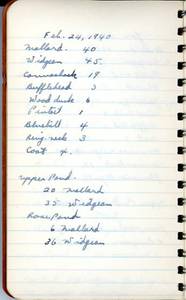 Feb. 24, 1940
Mallard. 40
Widgeon 45.
Canvasback 19
Bufflehead 3
Wood duck 6
Pintail 1
Bluebill 4
Ring-neck 3
Coot 4.
Upper Pond.
20 Mallard
35 Widgeon
Rose Pond
6 Mallard
36 Widgeon